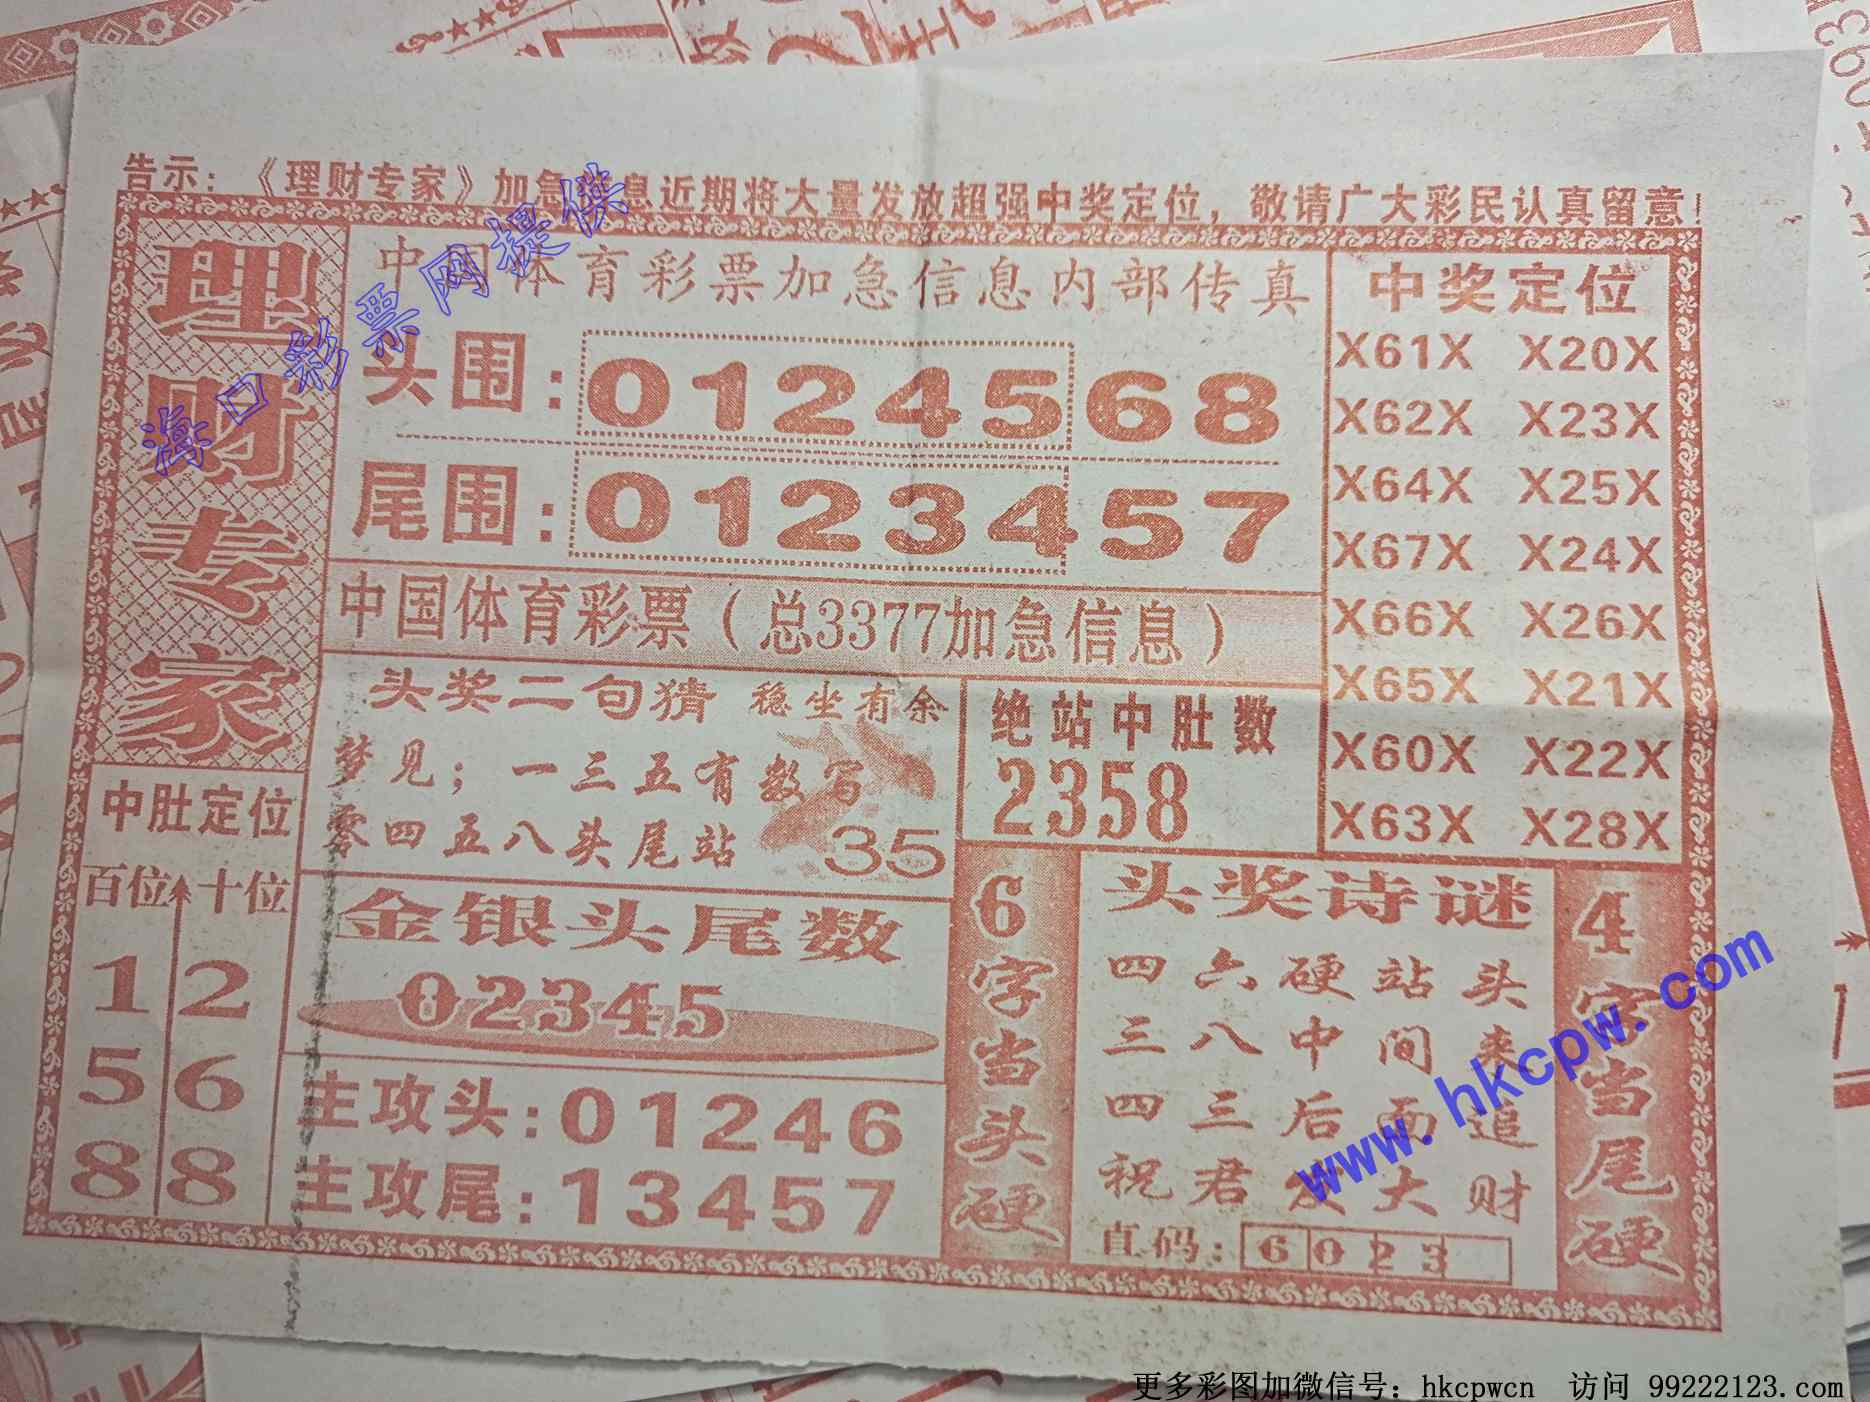 告示：《理财专家》加急信息近期将大量发放超强中奖定位，敬请广大彩民认真留意！
理财专家
中国体育彩票加急信息内部传真
头围：0124568
尾围：0123457
中国体育彩票（总3377加急信息）
中奖定位
X61X X20X
X62X X23X
X64X X25X
X67X X24X
X66X X26X
X65X X21X
X60X X22X
X63X X28X
头奖二句猜 稳坐有余
梦见；一三五有数写
零四五八头尾站
35
绝站中肚数
2358
中肚定位
百位 十位
1 2
5 6
8 8
金银头尾数
02345
主攻头：01246
主攻尾：13457
6字当头硬
头奖诗谜
四六硬站头
三八中间来
四三后面追
祝君发大财
直码：6023
4字当尾硬
海口彩票网提供
www.hkcpw.com
更多彩图加微信号：hkcpwcn 访问 99222123.com